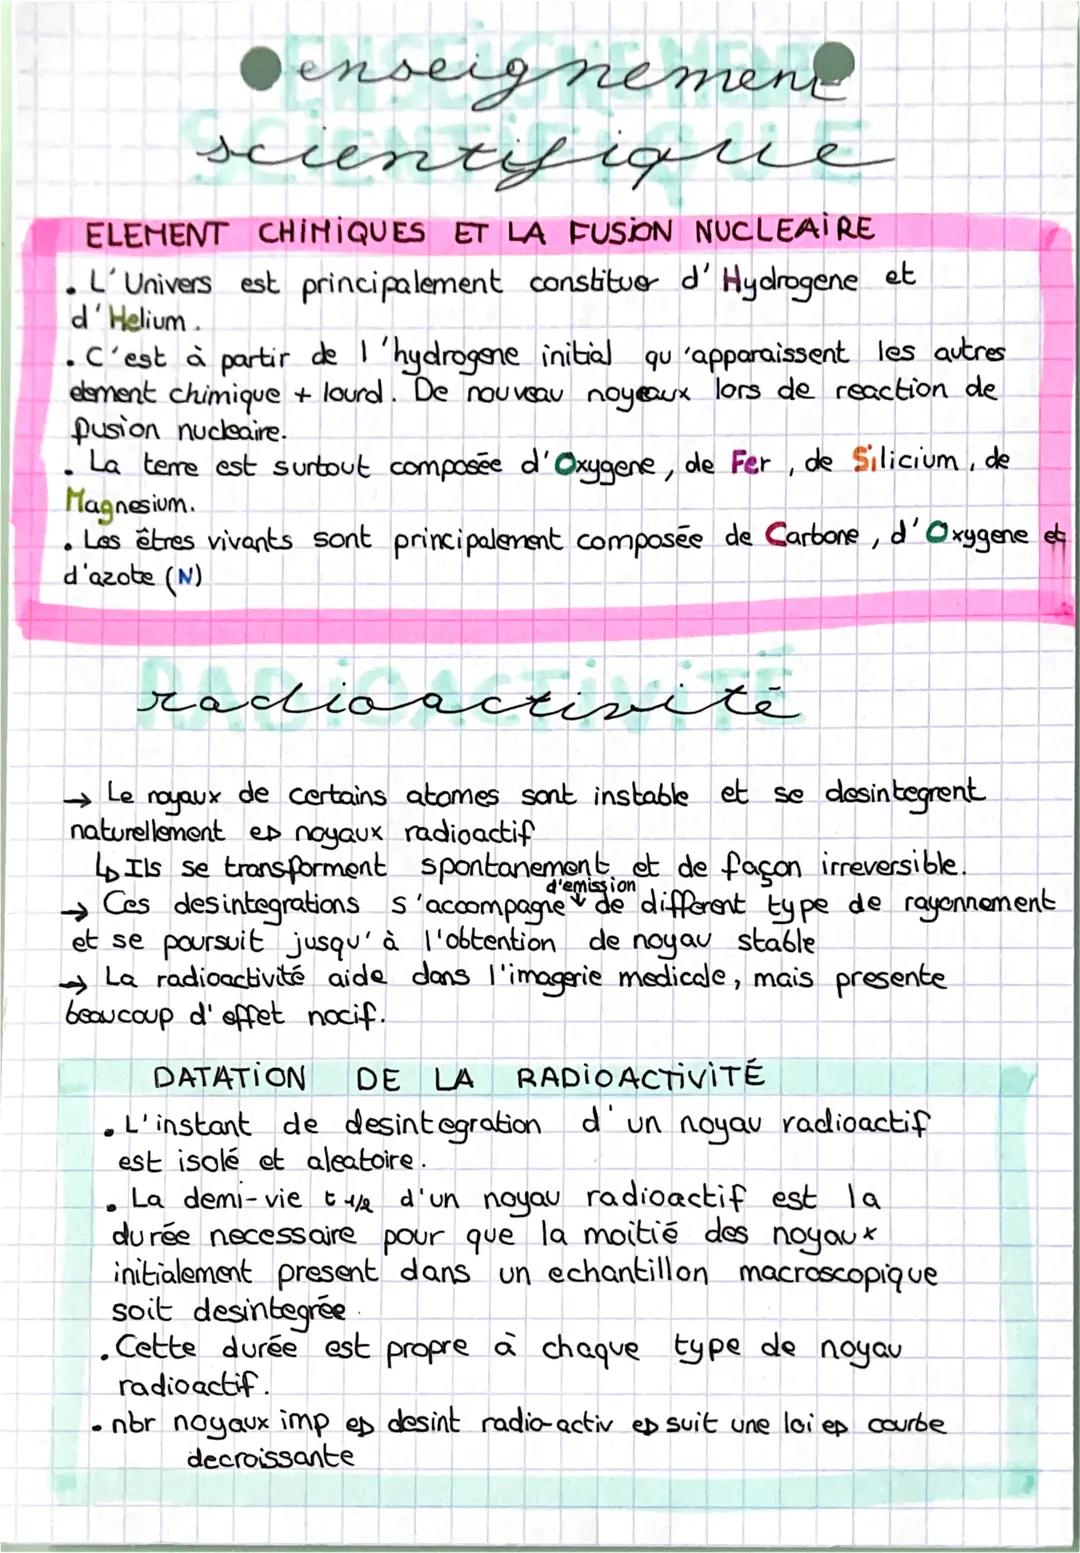 ENSEIGNEMENT
enseignement
SCIENTIFIQUE
scientifique
ELEMENT CHIMIQUES ET LA FUSION NUCLEAIRE
. L'Univers est principalement constituer d'Hydrogene et
d'Helium.
. C'est à partir de l'hydrogene initial qu'apparaissent les autres
element chimique + lourd. De nouveau noyeaux lors de reaction de
fusion nucleaire.
. La terre est surtout composée d'Oxygene, de Fer, de Silicium, de
Magnesium.
. Les êtres vivants sont principalement composée de Carbone, d'Oxygene et
d'azote (N)
RADIOACTIVITÉ
radioactivité
→ Le noyaux de certains atomes sont instable et se desintegrent
naturellement => noyaux radioactif
↳ Ils se transforment spontanement et de façon irreversible.
d'emission
→ Ces desintegrations s'accompagne ↓ de different type de rayonnement
et se poursuit jusqu'à l'obtention de noyau stable
→ La radioactivité aide dans l'imagerie medicale, mais presente
beaucoup d'effet nocif.
DATATION DE LA RADIOACTIVITÉ
. L'instant de desintegration d'un noyau radioactif
est isolé et aleatoire.
. La demi-vie t 1/2 d'un noyau radioactif est la
durée necessaire pour que la moitié des noyaux
initialement present dans un echantillon macroscopique
soit desintegrée.
. Cette durée est propre à chaque type de noyau
radioactif.
. nbr noyaux imp => desint radio-activ => suit une loi => courbe
decroissante